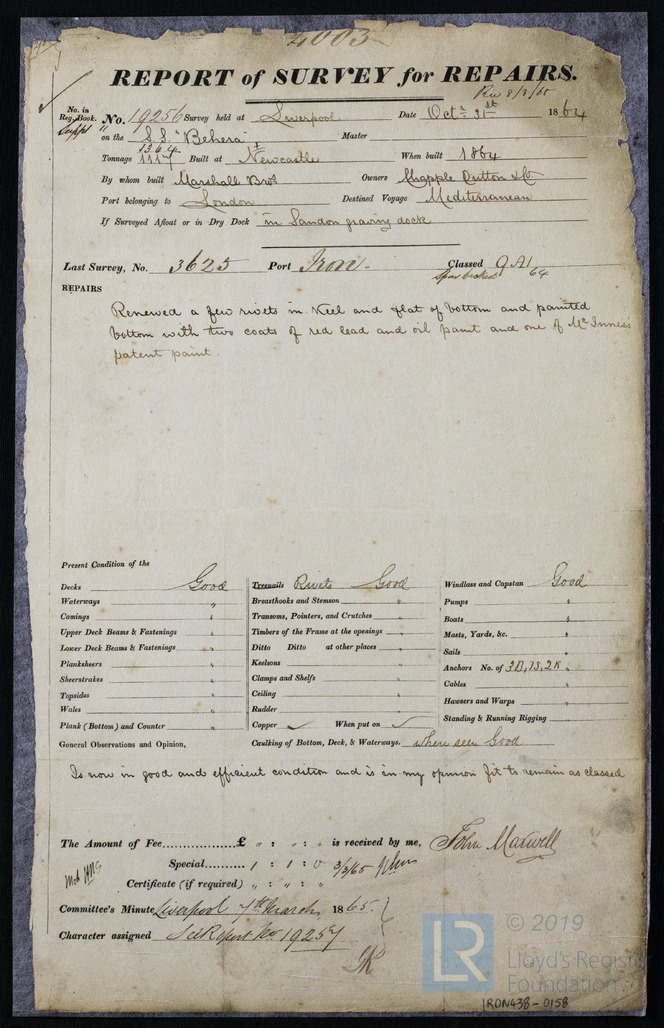 4003
REPORT of SURVEY for REPAIRS.
Rec 8/3/65
No. in Reg. Book. No. 19256 Survey held at Liverpool Date Octr 31st 1864
Suppt " on the S.S. "Behera" Master
1364
Tonnage 1117 Built at Newcastle When built 1864
By whom built Marshall Bros Owners Chapple Dutton & Co
Port belonging to London Destined Voyage Mediterranean
If Surveyed Afloat or in Dry Dock in Sandon graving dock
Last Survey, No. 3625 Port Iron. Classed 9 A1
Spar decked 64
REPAIRS
Renewed a few rivets in Keel and flat of bottom and painted
bottom with two coats of red lead and oil paint and one of McInness's
patent paint.
Present Condition of the
Decks Good Treenails Rivets Good Windlass and Capstan Good
Waterways " Breasthooks and Stemson " Pumps "
Comings " Transoms, Pointers, and Crutches " Boats "
Upper Deck Beams & Fastenings " Timbers of the Frame at the openings " Masts, Yards, &c. "
Lower Deck Beams & Fastenings " Ditto Ditto at other places " Sails "
Planksheers " Keelsons " Anchors No. of 3B, 1S, 2K "
Sheerstrakes " Clamps and Shelfs " Cables "
Topsides " Ceiling " Hawsers and Warps "
Wales " Rudder " Standing & Running Rigging "
Plank (Bottom) and Counter " Copper ✓ When put on ✓
General Observations and Opinion, Caulking of Bottom, Deck, & Waterways. where seen Good
Is now in good and efficient condition and is in my opinion fit to remain as classed
The Amount of Fee £ " : " : " is received by me, John Maxwell
Special 1 : 1 : 0 3/3/65
Certificate (if required) " : " : "
Committee's Minute Liverpool 7th March 1865.
Character assigned See Report No 19257
© 2019
LR
Lloyd's Register
Foundation
IRON438-0158